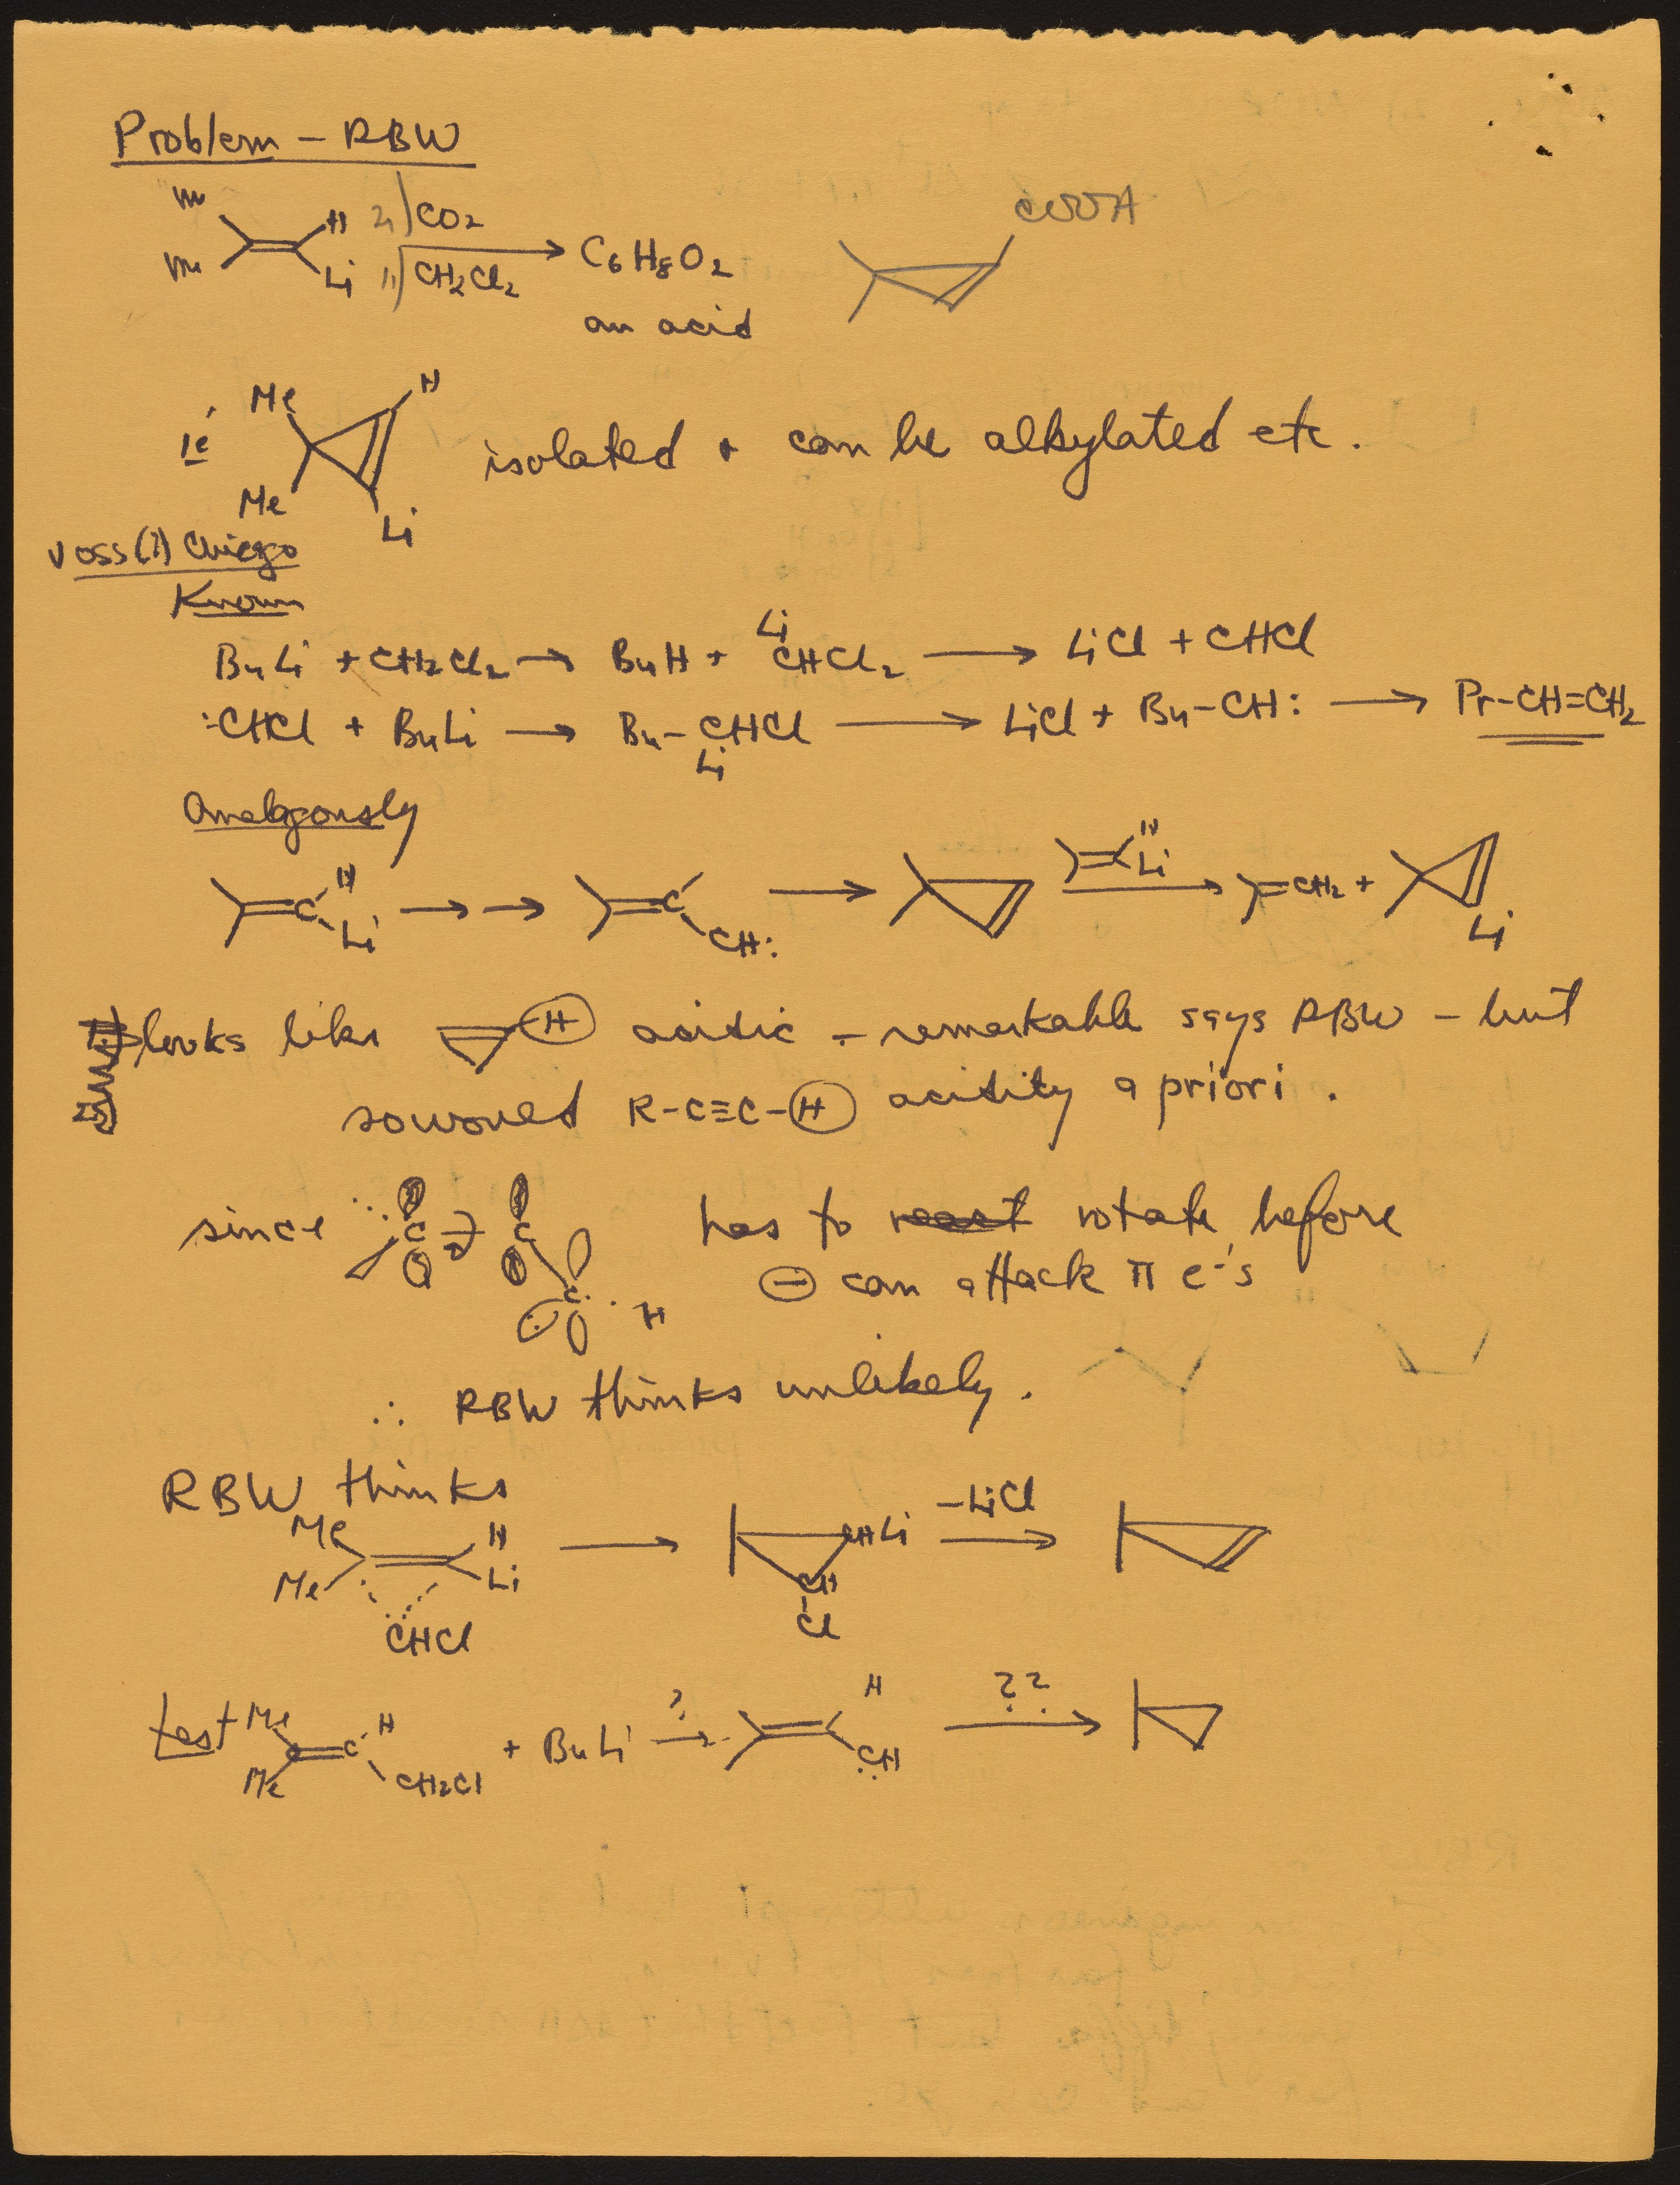 Problem – RBW
Me
Me
H
Li
2) CO2
1) CH2Cl2
C6H8O2
an acid
COOH
ie
Me
Me
H
Li
isolated + can be alkylated etc.
Voss(?) Chicago
Known
BuLi + CH2Cl2 → BuH + LiCHCl2 → LiCl + CHCl
:CHCl + BuLi → Bu–CHCl → LiCl + Bu–CH: → Pr–CH=CH2
Li
Analogously
H
C
Li
→ →
C
CH:
→
H
Li
→
=CH2 +
Li
looks like
H
acidic – remarkable says RBW – but
R–C≡C–H acidity a priori.
since
C
C
C
H
has to react rotate before
⊖ can attack π e-'s
∴ RBW thinks unlikely.
RBW thinks
Me
Me
H
Li
CHCl
→
CHLi
CH
Cl
–LiCl
→
test
Me
Me
C
H
CH2Cl
+ BuLi
?
→
H
CH
??
→